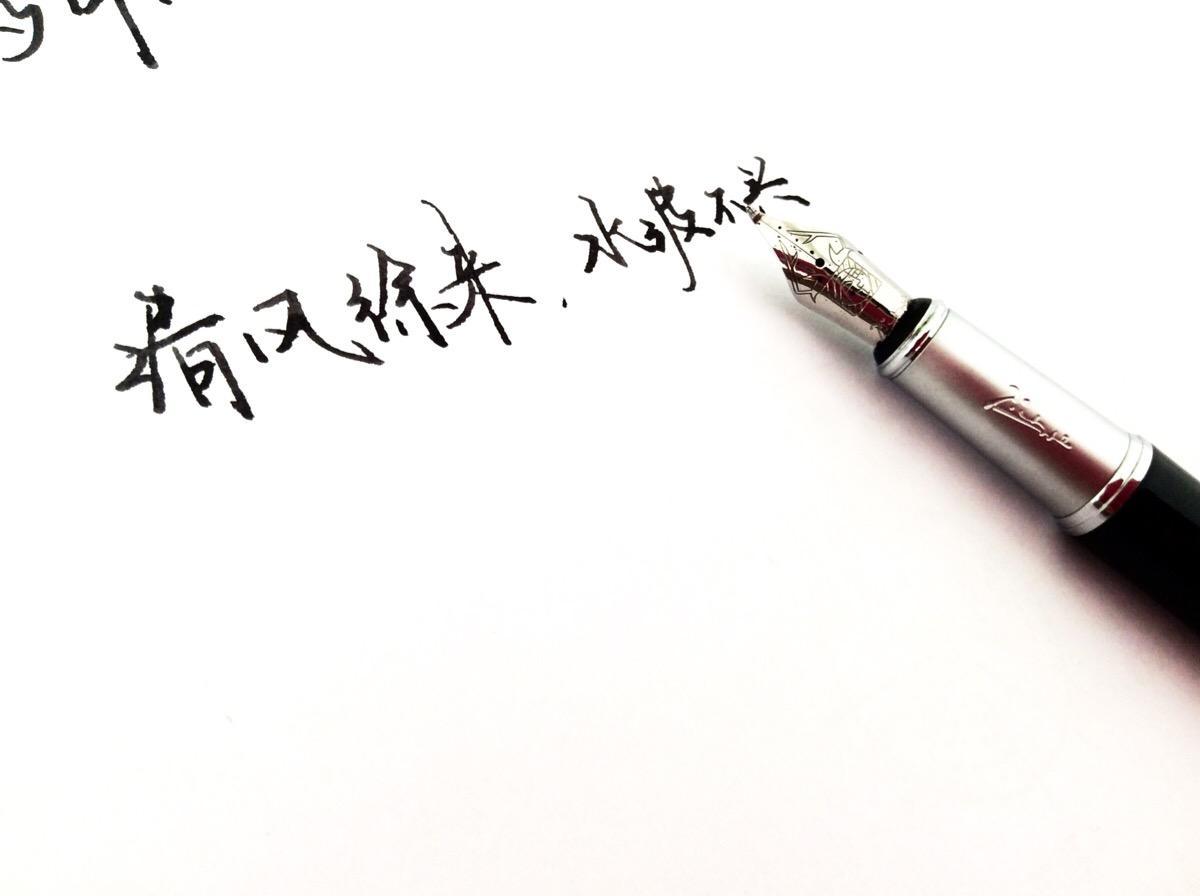 清风徐来，水波不兴